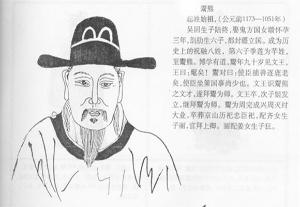 鬻熊
起祖始祖，(公元前1173—1051年)
吴回生子陆终，娶鬼方国女嬇怀孕
三年，剖胁生六子，都封疆立国。成为历
史上的祝融八姓。第六子季连为芈姓，
至鬻熊。博学有道，鬻年九十岁见文王。
王曰：耄矣！鬻对曰：使臣捕兽逐鹿老
矣，使臣坐策国事尚少也。文王识鬻熊
之文才，遂拜鬻为师。文王卒，次子姬发
立，继拜鬻为师。鬻为周完成兴周灭纣
大业。卒葬京山历祀忠臣祀。配齐女生
子丽，官拜上卿。丽配姜女生子狂。